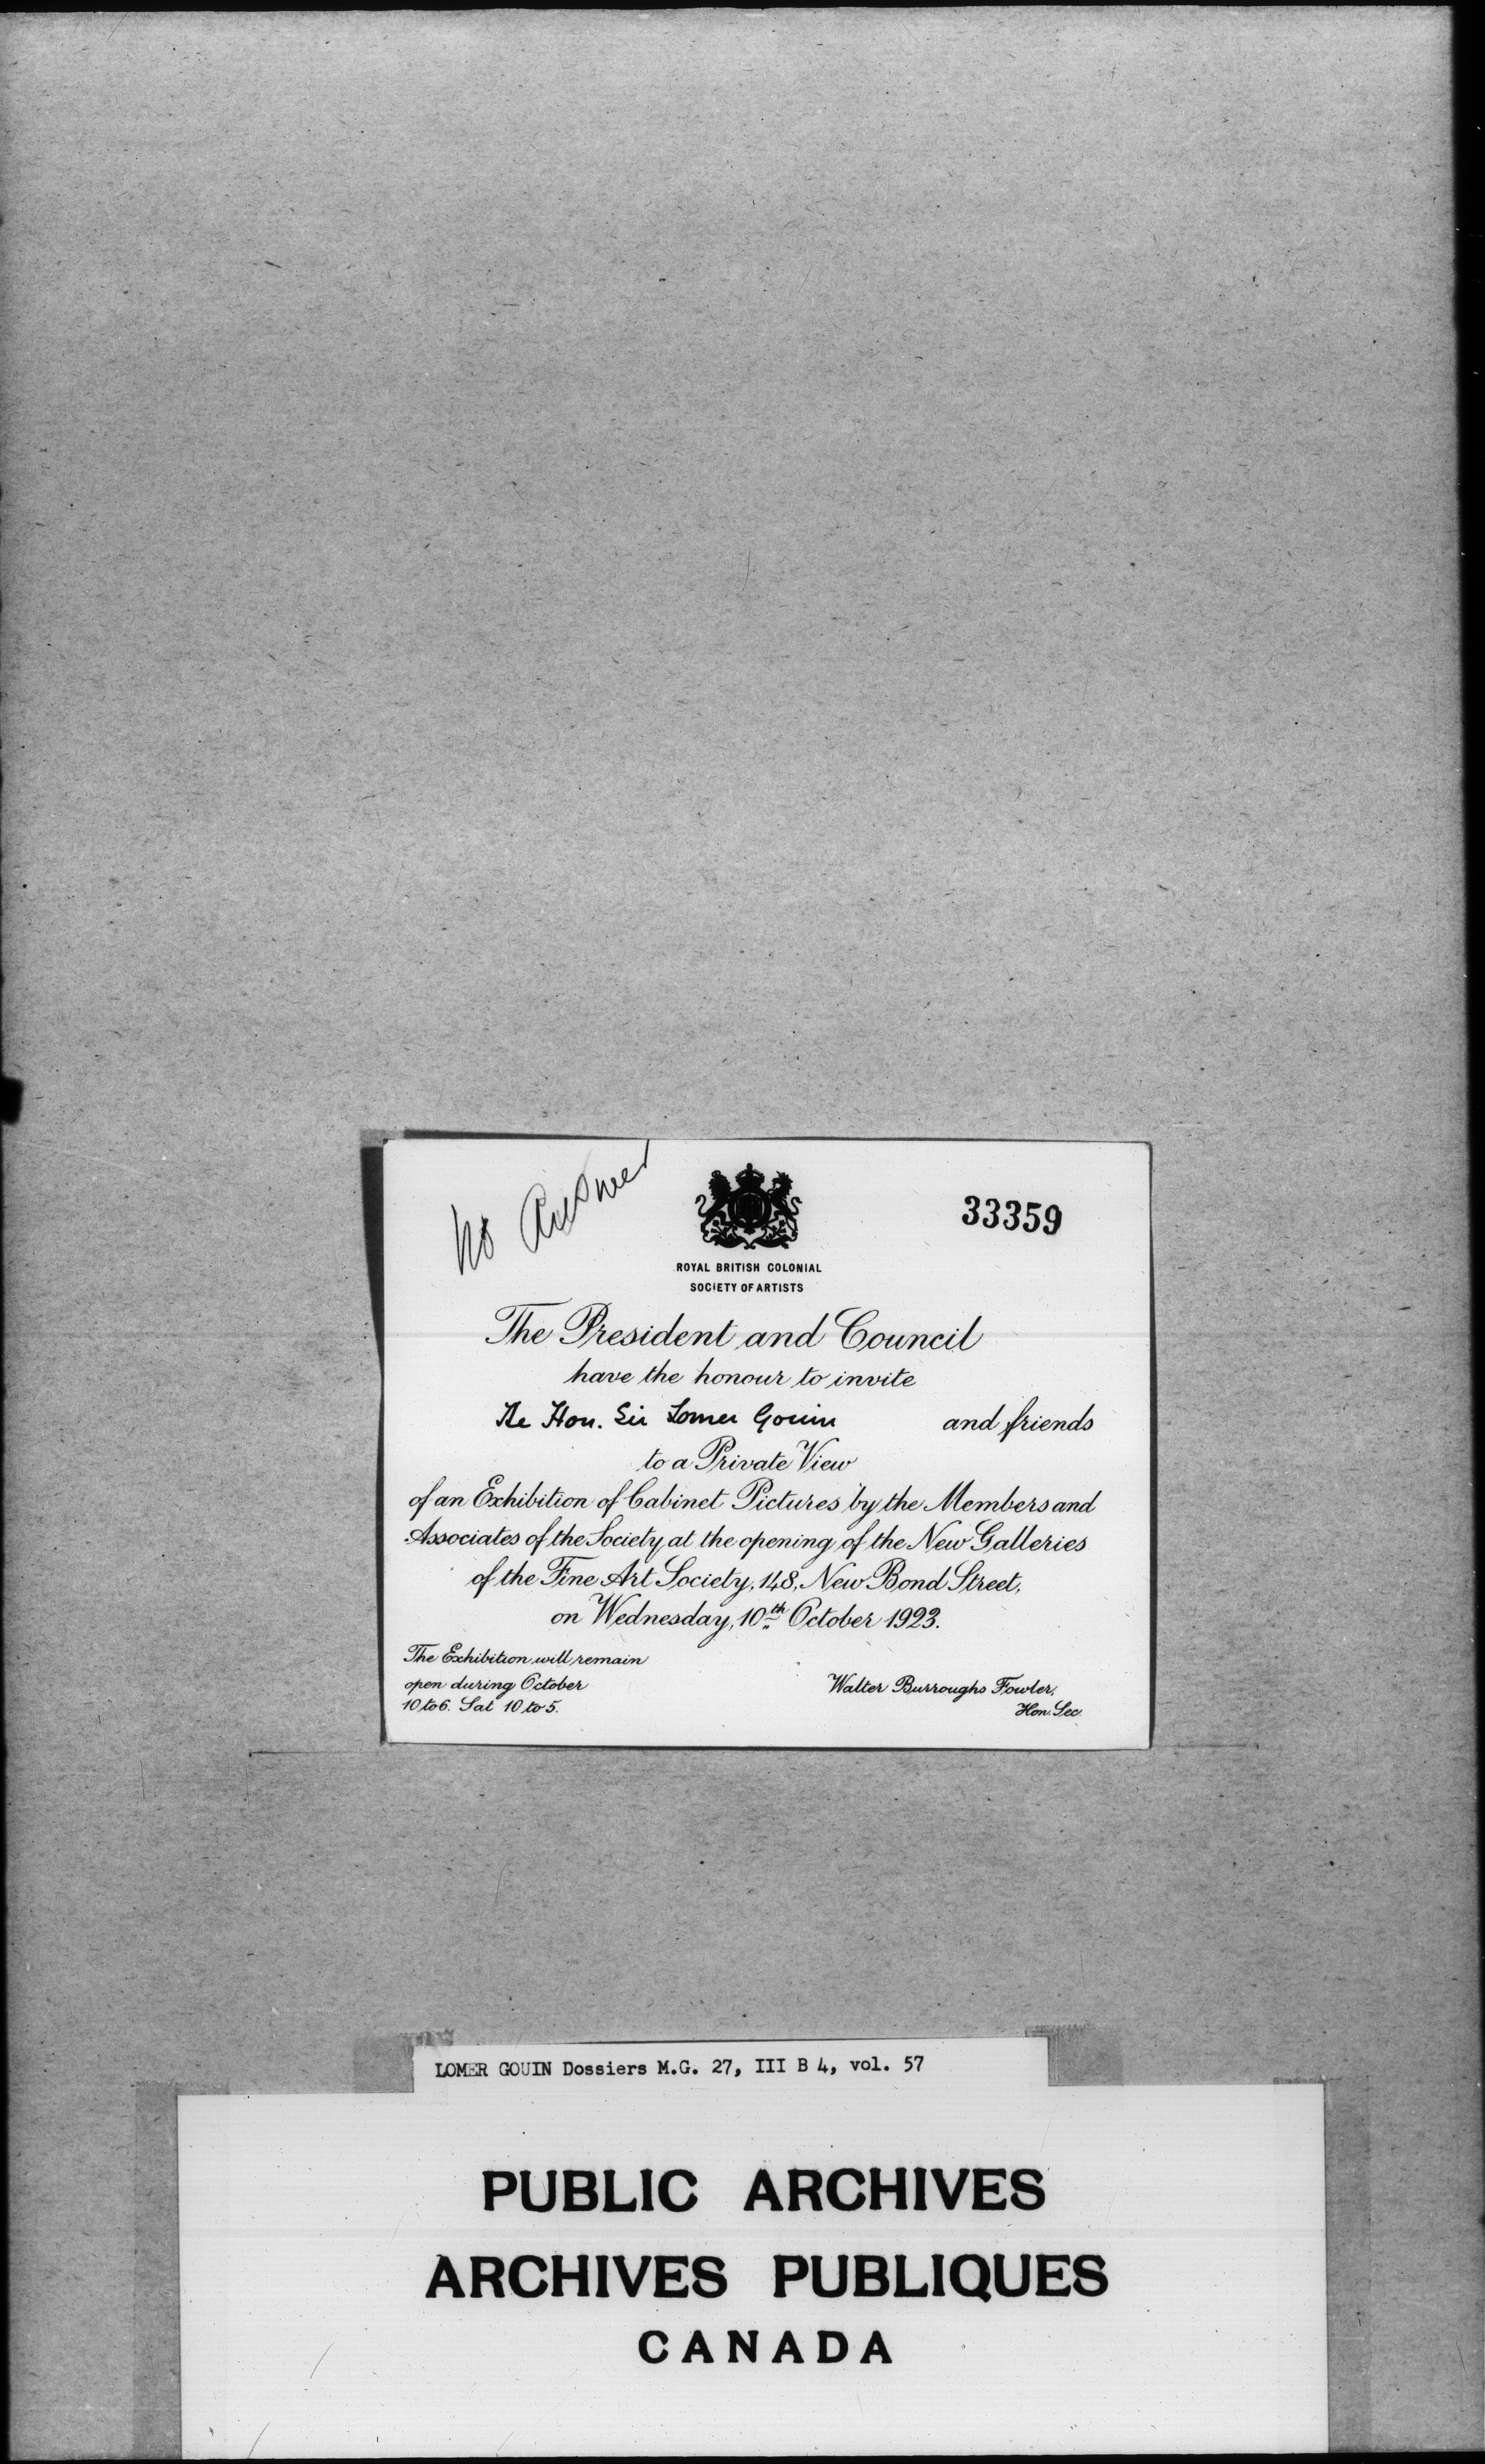 No Answer
33359
ROYAL BRITISH COLONIAL
SOCIETY OF ARTISTS
The President and Council
have the honour to invite
The Hon. Sir Lomer Gouin and friends
to a Private View
of an Exhibition of Cabinet Pictures by the Members and
Associates of the Society at the opening of the New Galleries
of the Fine Art Society, 148, New Bond Street,
on Wednesday, 10th October 1923.
The Exhibition will remain
open during October
10 to 6. Sat 10 to 5.
Walter Burroughs Fowler,
Hon. Sec.
LOMER GOUIN Dossiers M.G. 27, III B 4, vol. 57
PUBLIC ARCHIVES
ARCHIVES PUBLIQUES
CANADA